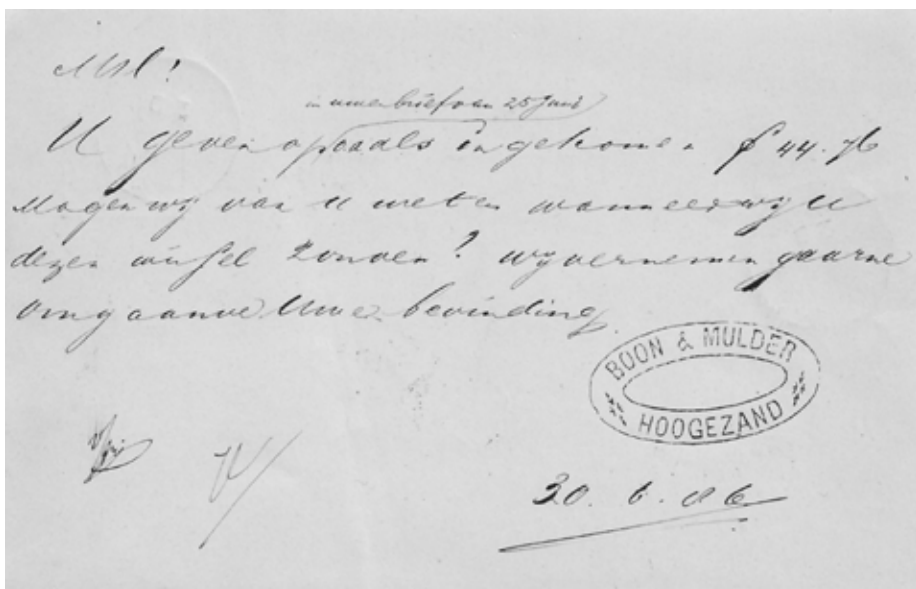 in uwen brief van 25 Juni
U geven op als ingekomen f 44.76
Mogen wij van u weten wanneer wij u
dezen wissel zonden? wij vernemen gaarne
omgaande Uwe bevinding
BOON & MULDER
HOOGEZAND
30. 6. 06